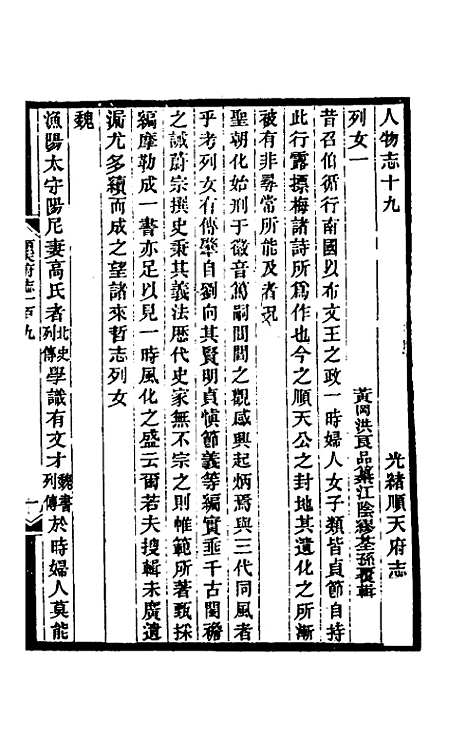 人物志十九　光緒順天府志
黃岡洪良品纂江陰繆荃孫覆輯
列女一
昔召伯循行南國以布文王之政一時婦人女子類皆貞節自持
此行露摽梅諸詩所爲作也今之順天公之封地其遺化之所漸
被有非尋常所能及者況
聖朝化始刑于徽音篤嗣閭閻之觀感興起炳焉與三代同風者
乎考列女有傳肇自劉向其賢明貞愼節義等編實垂千古閨襜
之誡蔚宗撰史秉其義法歷代史家無不宗之則帷範所著甄採
編摩勒成一書亦足以見一時風化之盛云爾若夫搜輯未廣遺
漏尤多續而成之望諸來哲志列女
魏
漁陽太守陽尼妻高氏者北史列傳學識有文才魏書列傳於時婦人莫能
順天府志一百九
一